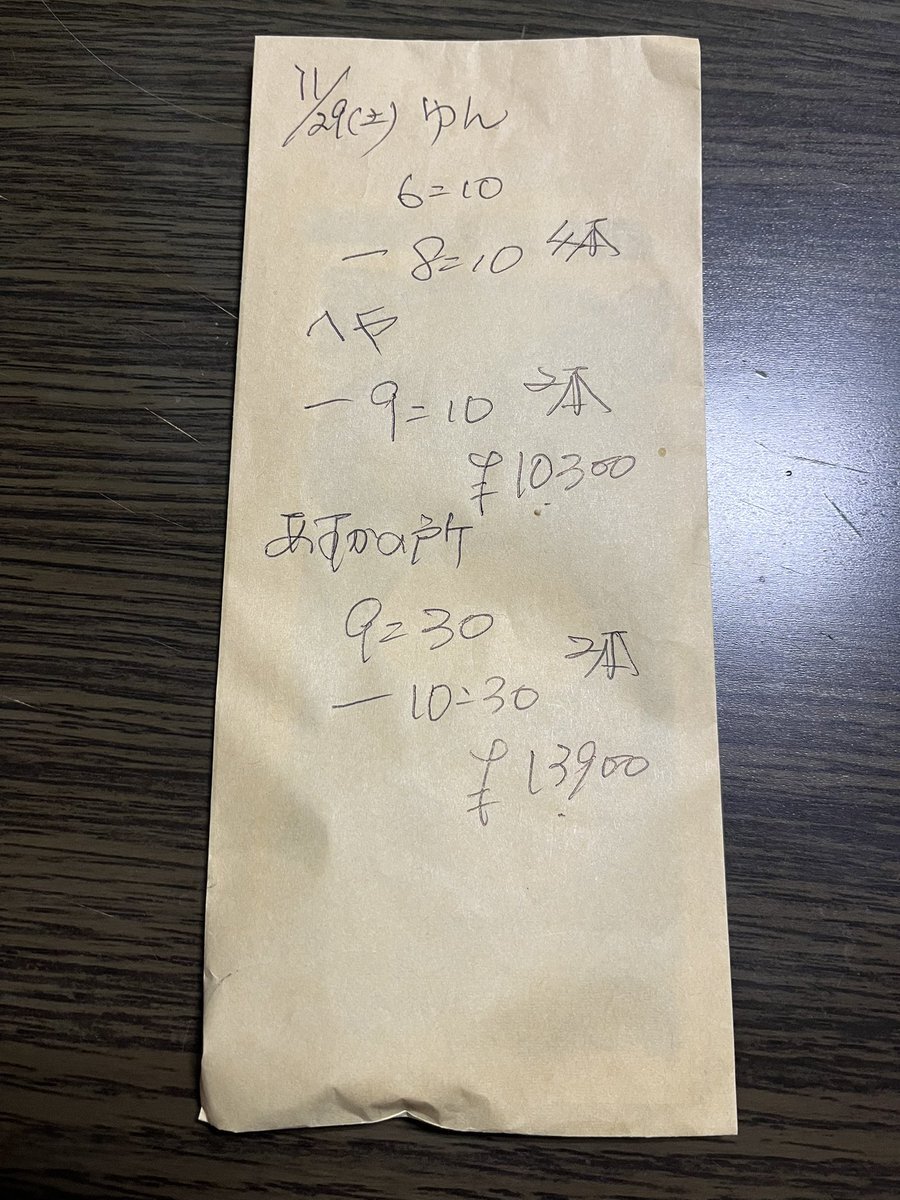 11/29(土) ゆん
6=10
— 8=10 4本
ヘヤ
— 9=10 2本
¥10,300
あすかの所
9=30
— 10=30 2本
¥13,900